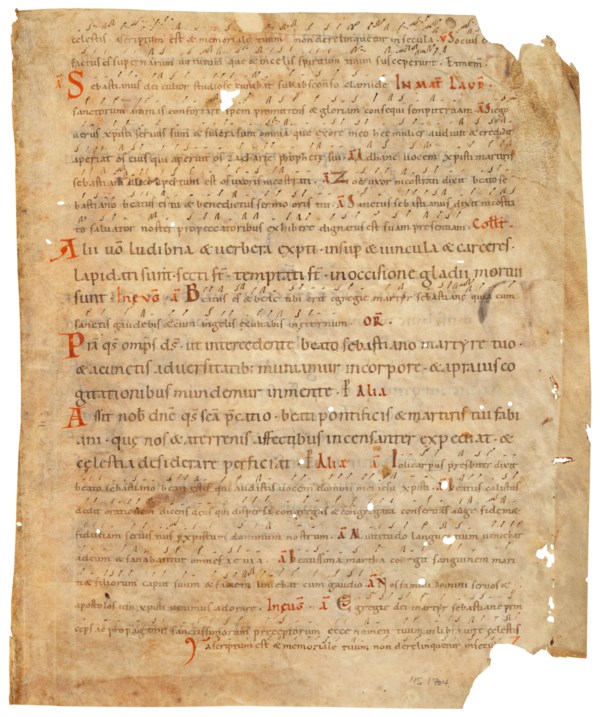 celestis ascriptum est & memoriale tuum non derelinquetur in secula. VS Locus
factus es supernarum virtutum que de celis spiritum tuum susceperunt.
ā Sebastianus dei cultor studiose curabat sub absconso clamide IN MAT LAVD.
sanctorum animas confortare spem promittens & gloriam consequi sempiternam. ā Si ego
uerus xpisti seruus sum & si uera sunt omnia que ex ore meo hec mulier audiuit & credidit
aperiat os eius qui aperuit os zacharie prophete sui. ā Ad hanc uocem xpisti martiris
sebastiani apertum est os uxoris nicostrati. ā Zoe uxor nicostrati dixit beato se
bastiano beatus es tu & benedictus sermo oris tui. ā Sanctus sebastianus dixit nicostra
to saluator noster pro peccatoribus exhibere dignatus est suam presentiam. Coll.
Alii uo ludibria & uerbera expti. insup & uincula & carceres.
lapidati sunt. secti st. temptati st. in occisione gladii mortui
sunt. In euo. ā Beatus es & bene tibi erit egregie martyr sebastiane quia cum
sanctis gaudebis & cum angelis exultabis in eternum. OR.
Prā qs omps ds. ut intercedente beato sebastiano martyre tuo.
& a cunctis aduersitatib; muniamur in corpore. & a prauis co
gitationibus mundemur in mente. p Alia
Assit nob dne qs sca pcatio. beati pontificis & martiris tui fabi
ani. que nos & a terrenis affectibus incessanter expediat. &
celestia desiderare perficiat. p Aliæ ā Policarpus presbiter dixit
beato sebastiano beati estis qui audistis uocem domini nostri ihesu xpisti. ā
dedit orationem dicens deus qui dispersa congregas & congregata conseruas auge fidem &
fiduciam seruis tuis p xpistum dominum nostrum. ā Multitudo languentium ueniebat
ad eum & sanabantur omnes a cura. ā Beatissima martha collegit sanguinem mari
ti & filiorum caput suum & faciem liniebat cum gaudio ā Nos famuli domini seruos &
apostolos ihu xpisti uenimus adorare. In euo. ā Egregie dei martyr sebastiane prin
ceps & propagator sanctissimorum preceptorum ecce nomen tuum in libro uite celestis
ascriptum est & memoriale tuum non derelinquetur in secula
MS 1704